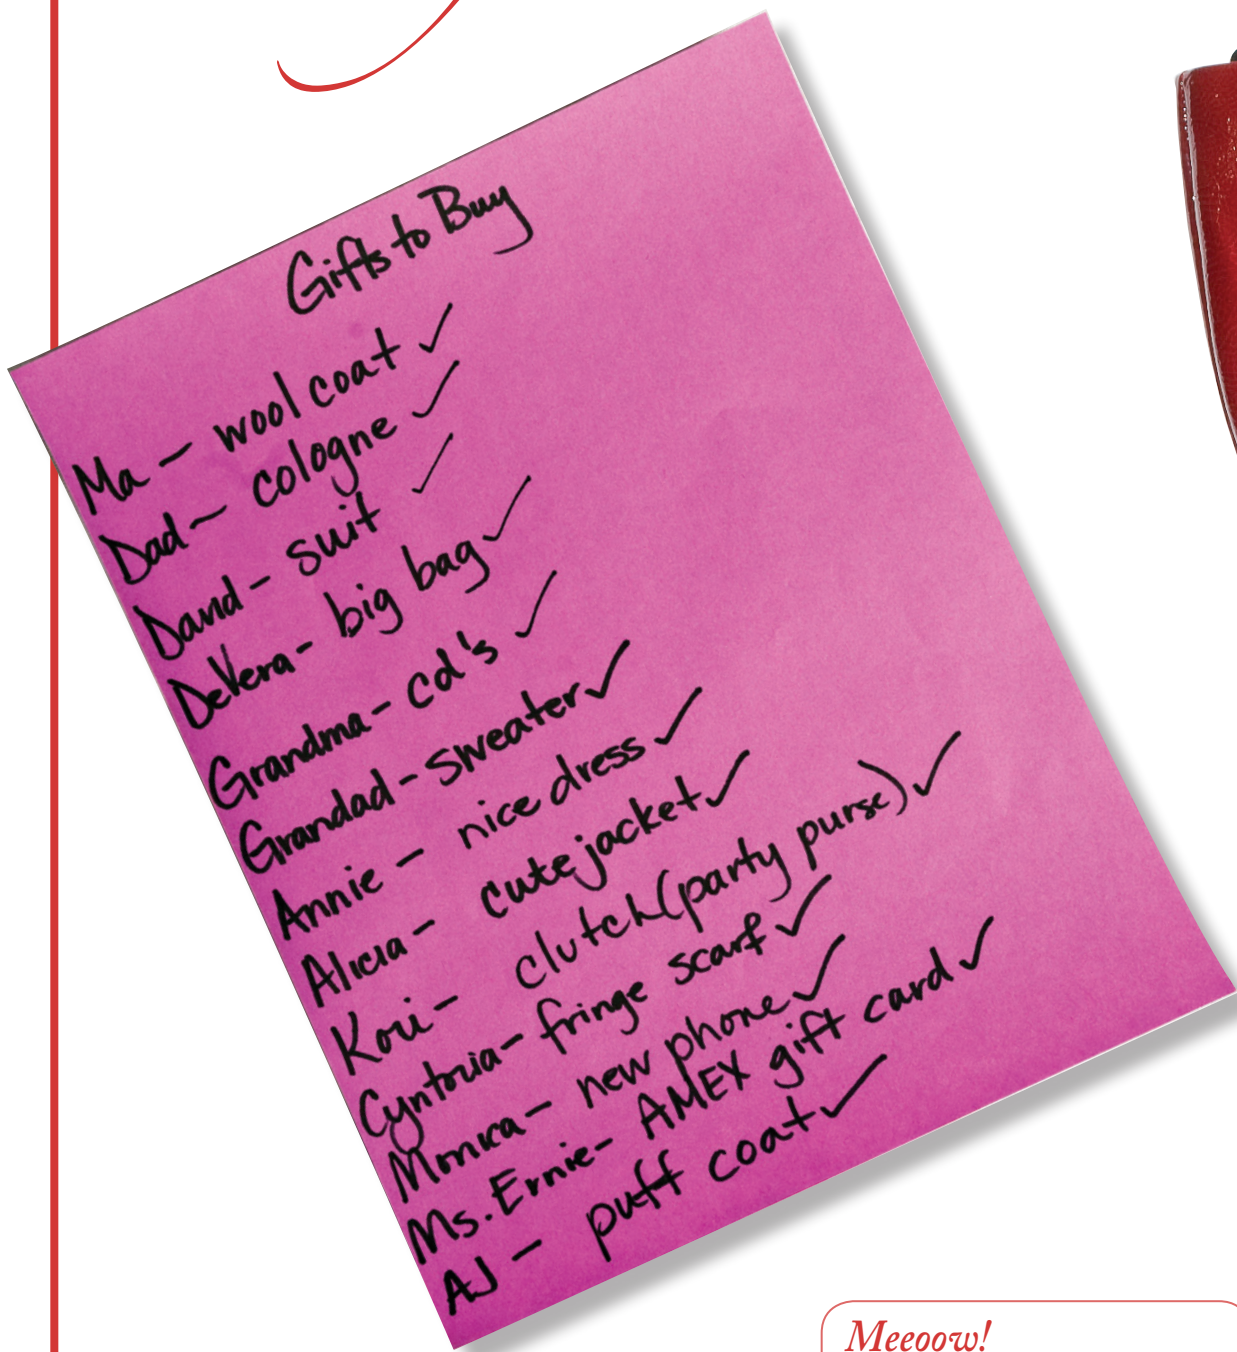 Gifts to Buy
Ma - wool coat ✓
Dad - cologne ✓
David - suit ✓
DeVera - big bag ✓
Grandma - cd's ✓
Grandad - sweater ✓
Annie - nice dress ✓
Alicia - cute jacket ✓
Kori - clutch (party purse) ✓
Cyntoria - fringe scarf ✓
Monica - new phone ✓
Ms. Ernie - AMEX gift card ✓
AJ - puff coat ✓
Meeoow!